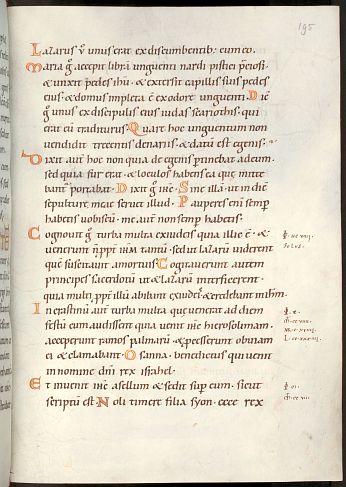 195
Lazarus v̄ unus erat ex discumbentib; cum eo.
Maria g̊ accepit librā unguenti nardi pistici p̄ciosi·
& unxit pedes ihū· & extersit capillis suis pedes
eius· & domus impleta ē ex odore unguenti· Dic̄
g̊ unus ex discipulis eius iudas scariothis· qui
erat eū traditurus· Quare hoc unguentum non
uendidit trecentis denariis· & datū est egenis·
Dixit aut̄ hoc non quia de egenis p̄tinebat ad eum·
sed quia fur erat· & loculos habens ea quę mitte
bant̄ portabat· Dixit g̊ ihc̄· Sine illā· ut in diē
sepulturę meę seruet illud· Pauperes eni semp̄
habetis uobiscū· me aut̄ non semp̄ habetis·
Cognouit g̊ turba multa ex iudeis quia illic ē· &
uenerunt n̄ ppt̄ ihm̄ tantū· sed ut lazarū uiderent
quē suscitauit a mortuis· Cogitauerunt autem
principes sacerdotū ut & lazarū interficerent·
quia multi ppt̄ illū abibant ex iudeis & credebant in ihm̄·
In crastinū aut̄ turba multa quę uenerat ad diem
festū cum audissent quia uenit ihc̄ hierosolimam·
acceperunt ramos palmarū· & processerunt obuiam
ei & clamabant· Osanna· benedictus qui uenit
in nomine dn̄i rex israhel·
Et inuenit ihc̄ asellum & sedit sup̄ eum· sicut
scriptū est· Noli timere filia syon· ecce rex